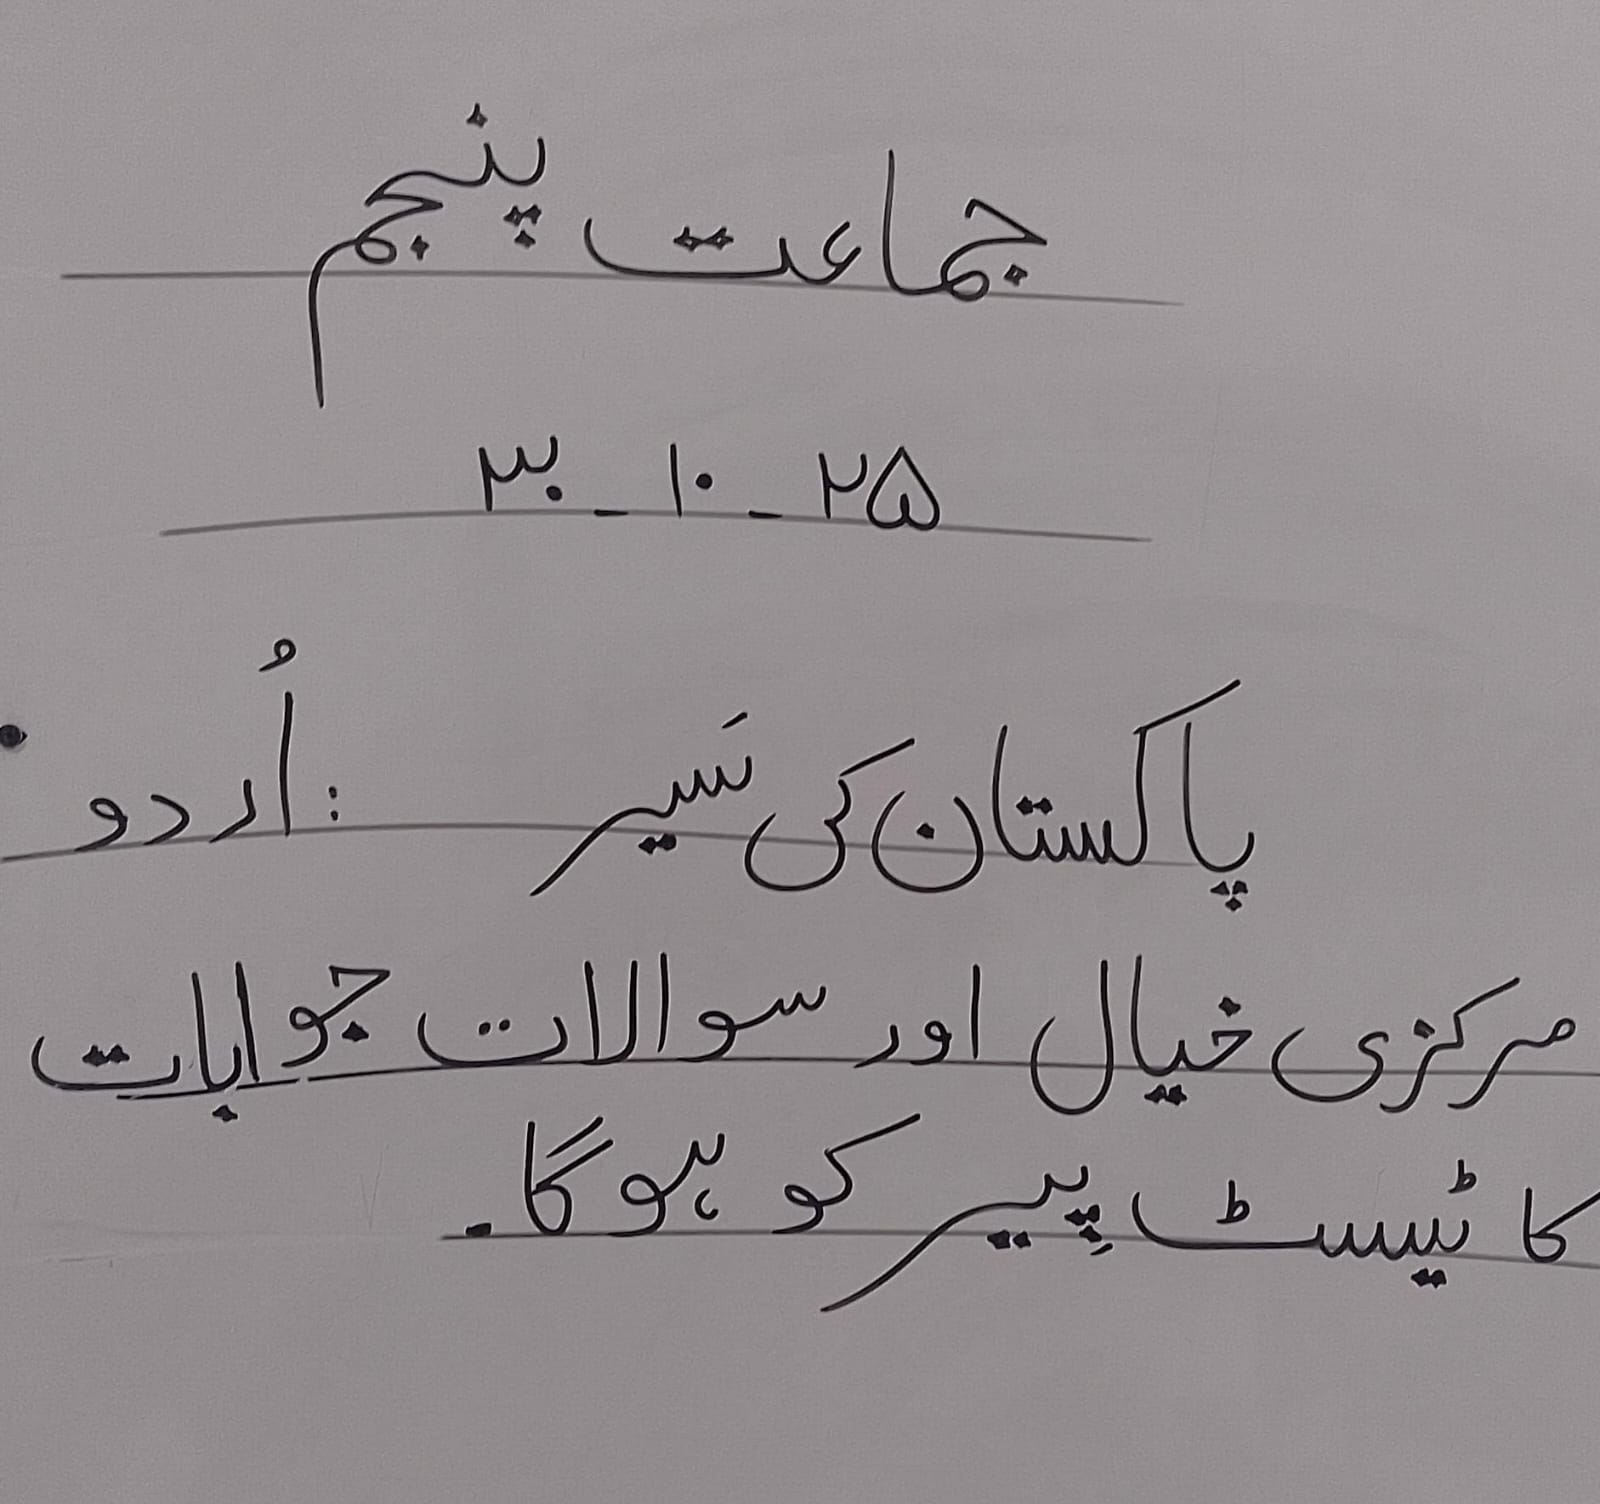 جماعت پنجم
۳۰-۱۰-۲۵
اُردو: پاکستان کی سَیر
مرکزی خیال اور سوالات جوابات
کا ٹیسٹ پِیر کو ہوگا۔